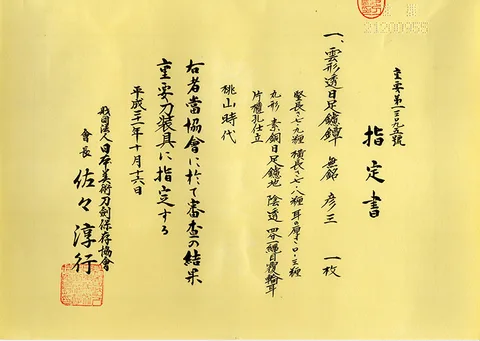 21200955
重要第
號
指定書
一、雲形透日足鑢鐔 無銘 彦三 一枚
竪長さ七・九糎 横長さ七・八糎 耳の厚さ〇・三糎
丸形 素銅日足鑢地 陰透 四分一縄目覆輪耳
片櫃孔仕立
桃山時代
右者當協會に於て審査の結果
重要刀装具に指定する
平成二十一年十月十六日
財団法人日本美術刀劍保存協會
會長 佐々淳行